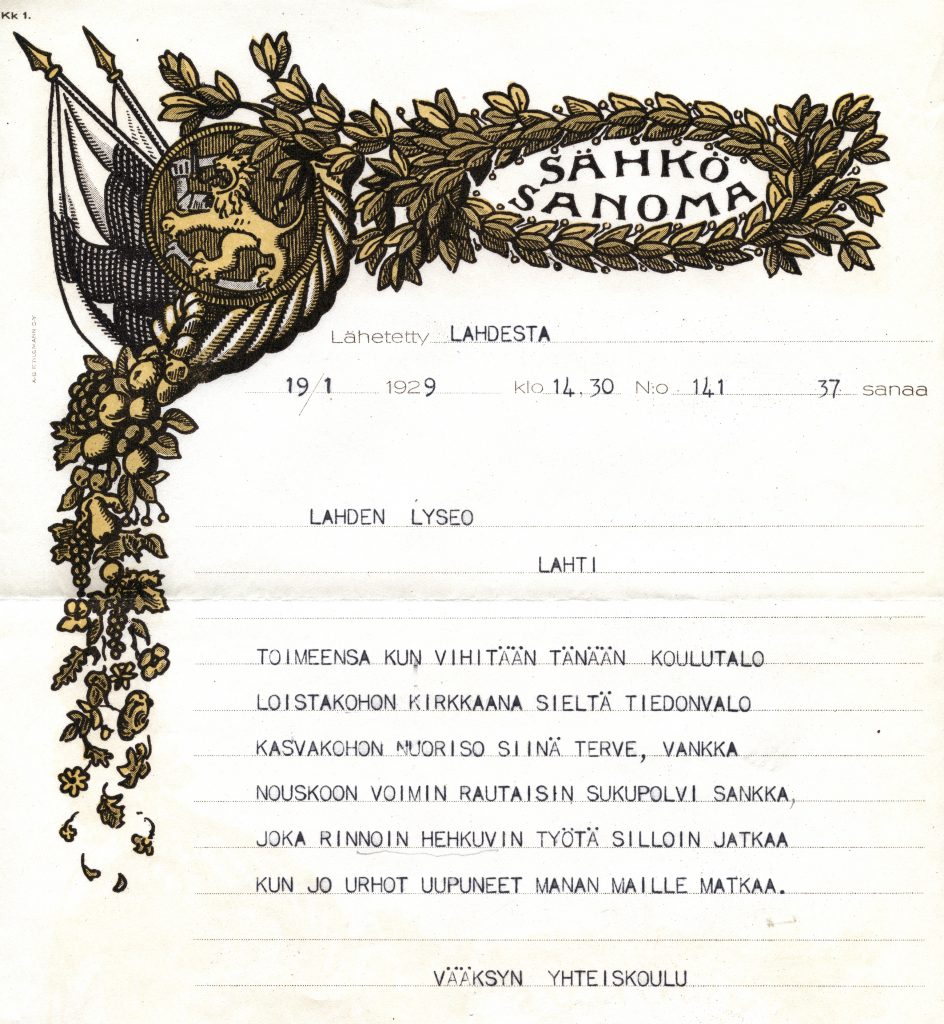 Kk 1.
SÄHKÖ
SANOMA
Lähetetty LAHDESTA
19/1 1929 klo 14.30 N:o 141 37 sanaa
LAHDEN LYSEO
LAHTI
TOIMEENSA KUN VIHITÄÄN TÄNÄÄN KOULUTALO
LOISTAKOHON KIRKKAANA SIELTÄ TIEDONVALO
KASVAKOHON NUORISO SIINÄ TERVE, VANKKA
NOUSKOON VOIMIN RAUTAISIN SUKUPOLVI SANKKA,
JOKA RINNOIN HEHKUVIN TYÖTÄ SILLOIN JATKAA
KUN JO URHOT UUPUNEET MANAN MAILLE MATKAA.
VÄÄKSYN YHTEISKOULU